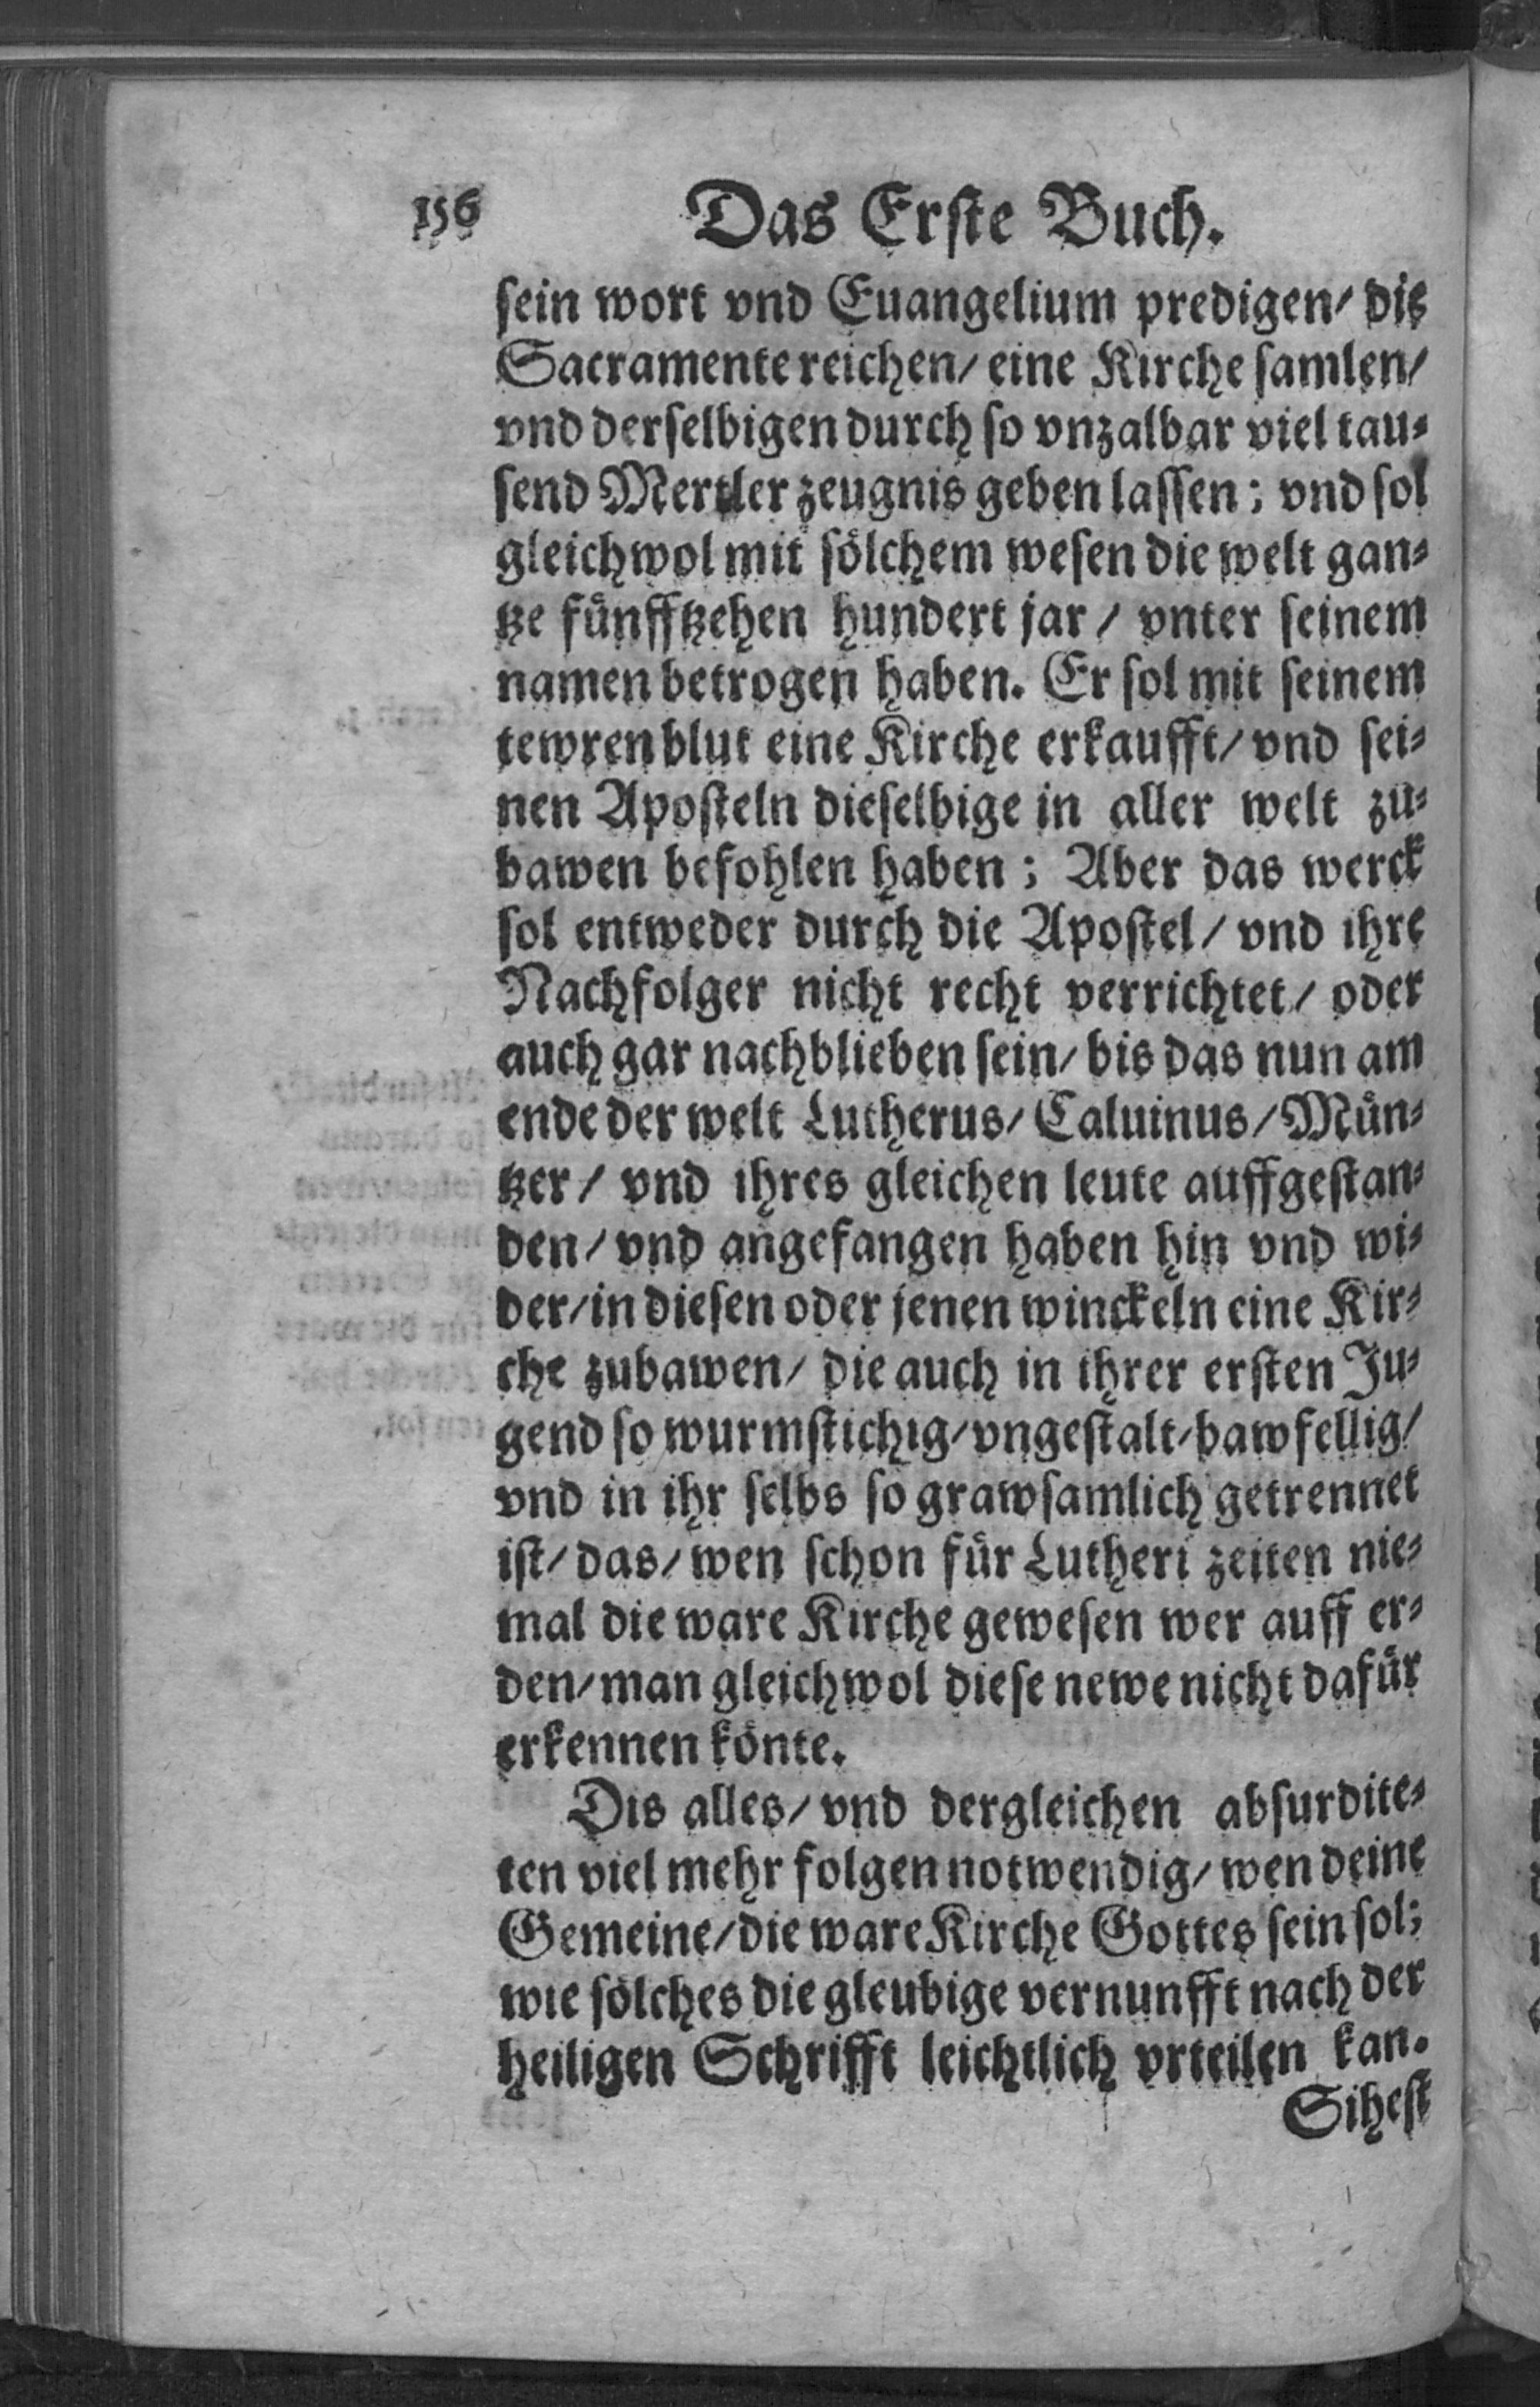 156 Das Erste Buch.
sein wort vnd Euangelium predigen/ die
Sacramente reichen/ eine Kirche samlen/
vnd derselbigen durch so vnzalbar viel tau⸗
send Mertler zeugnis geben lassen; vnd sol
gleichwol mit sölchem wesen die welt gan⸗
tze fünfftzehen hundert jar/ vnter seinem
namen betrogen haben. Er sol mit seinem
tewren blut eine Kirche erkaufft/ vnd sei⸗
nen Aposteln dieselbige in aller welt zu⸗
bawen befohlen haben; Aber das werck
sol entweder durch die Apostel/ vnd ihre
Nachfolger nicht recht verrichtet/ oder
auch gar nachblieben sein/ bis das nun am
ende der welt Lutherus/ Caluinus/ Mün⸗
tzer/ vnd ihres gleichen leute auffgestan⸗
den/ vnd angefangen haben hin vnd wi⸗
der/ in diesen oder jenen winckeln eine Kir⸗
che zubawen/ die auch in ihrer ersten Ju⸗
gend so wurmstichig/ vngestalt/ bawfellig/
vnd in ihr selbs so grawsamlich getrennet
ist/ das/ wen schon für Lutheri zeiten nie⸗
mal die ware Kirche gewesen wer auff er⸗
den/ man gleichwol diese newe nicht dafür
erkennen könte.
Dis alles/ vnd dergleichen absurdite⸗
ten viel mehr folgen notwendig/ wen deine
Gemeine/ die ware Kirche Gottes sein sol;
wie sölches die gleubige vernunfft nach der
heiligen Schrifft leichtlich vrteilen kan.
Sihest